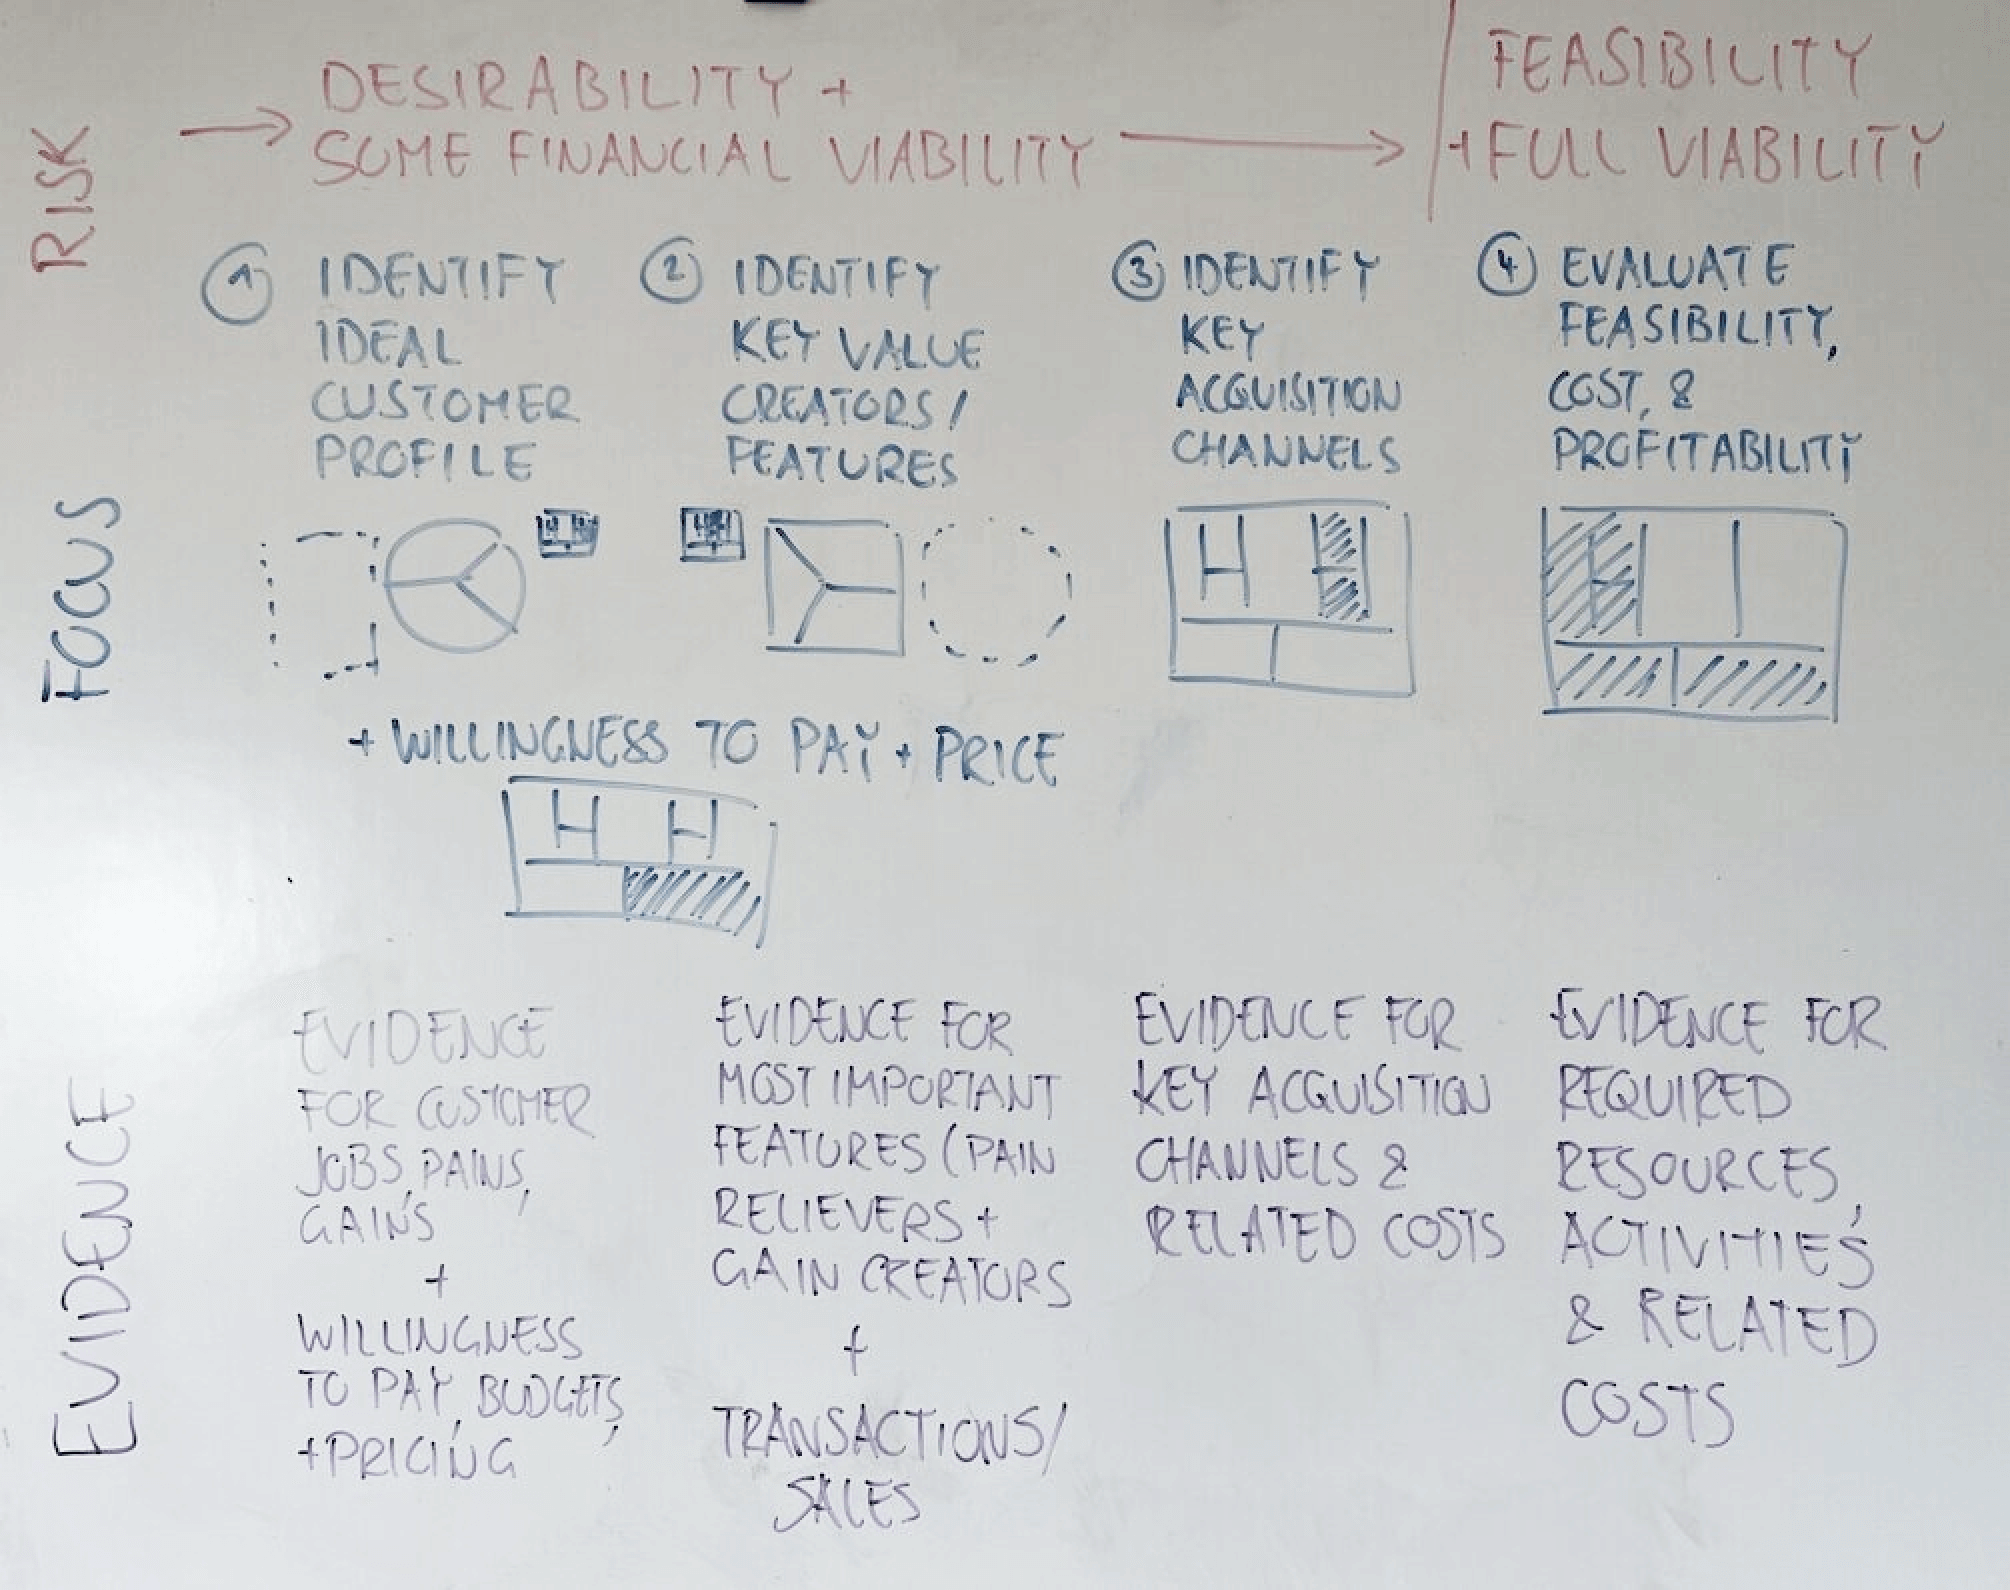 RISK
→ DESIRABILITY +
SOME FINANCIAL VIABILITY →
FEASIBILITY
+ FULL VIABILITY
FOCUS
1 IDENTIFY
IDEAL
CUSTOMER
PROFILE
2 IDENTIFY
KEY VALUE
CREATORS/
FEATURES
3 IDENTIFY
KEY
ACQUISITION
CHANNELS
4 EVALUATE
FEASIBILITY,
COST, &
PROFITABILITY
+ WILLINGNESS TO PAY + PRICE
EVIDENCE
EVIDENCE
FOR CUSTOMER
JOBS, PAINS,
GAINS
+
WILLINGNESS
TO PAY, BUDGETS,
+PRICING
EVIDENCE FOR
MOST IMPORTANT
FEATURES (PAIN
RELIEVERS +
GAIN CREATORS
+
TRANSACTIONS/
SALES
EVIDENCE FOR
KEY ACQUISITION
CHANNELS &
RELATED COSTS
EVIDENCE FOR
REQUIRED
RESOURCES,
ACTIVITIES
& RELATED
COSTS